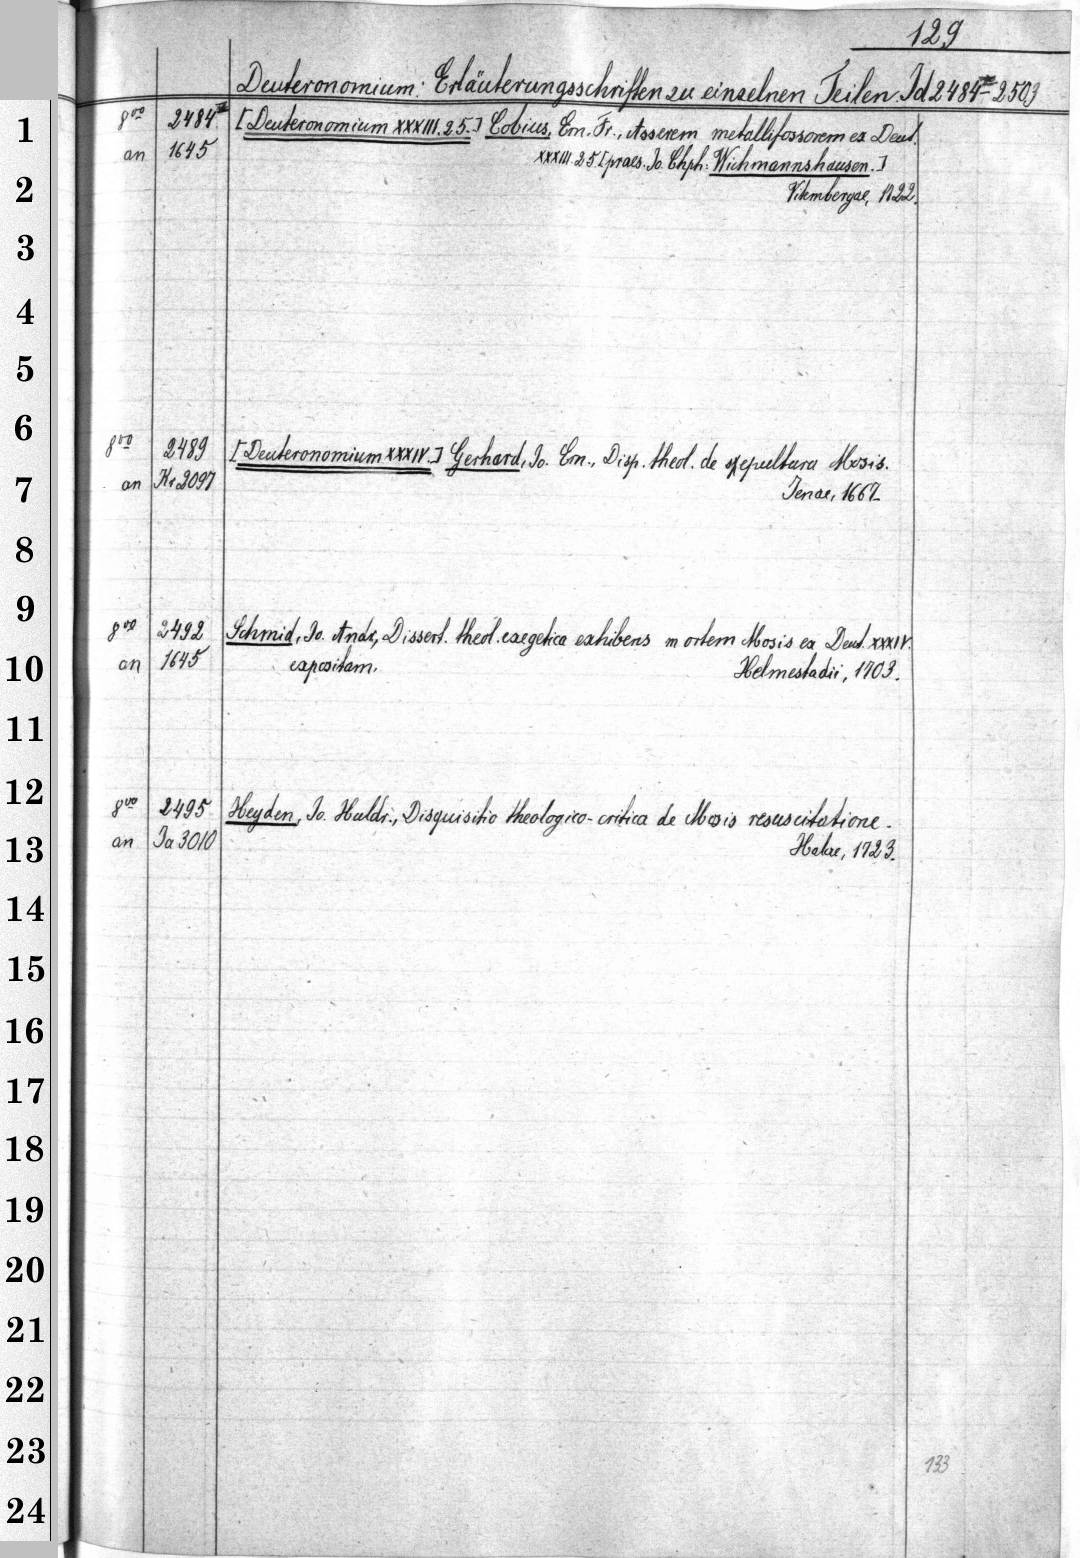 129
Deuteronomium: Erläuterungsschriften zu einzelnen Teilen. Id 2484 III - 2503
8vo 2484 III [Deuteronomium XXXIII. 25.] Cobius, Em. Fr., Asserem metallifossorem ex Deut.
an 1645 XXXIII. 25 [praes. Jo. Chph. Wichmannshausen.]
Vitembergae, 1722.
8vo 2489 [Deuteronomium XXXIV.] Gerhard, Jo. Ern., Disp. theol. de sepultura Mosis.
an 3097 Jenae, 1667.
8vo 2492 Schmid, Jo. Andr., Dissert. theol. exegetica exhibens mortem Mosis ex Deut. XXXIV.
an 1645 expositam. Helmestadii, 1703.
8vo 2495 Heyden, Jo. Huldr., Disquisitio theologico-critica de Mosis resuscitatione.
an Ja 3010 Halae, 1723.
133
1
2
3
4
5
6
7
8
9
10
11
12
13
14
15
16
17
18
19
20
21
22
23
24